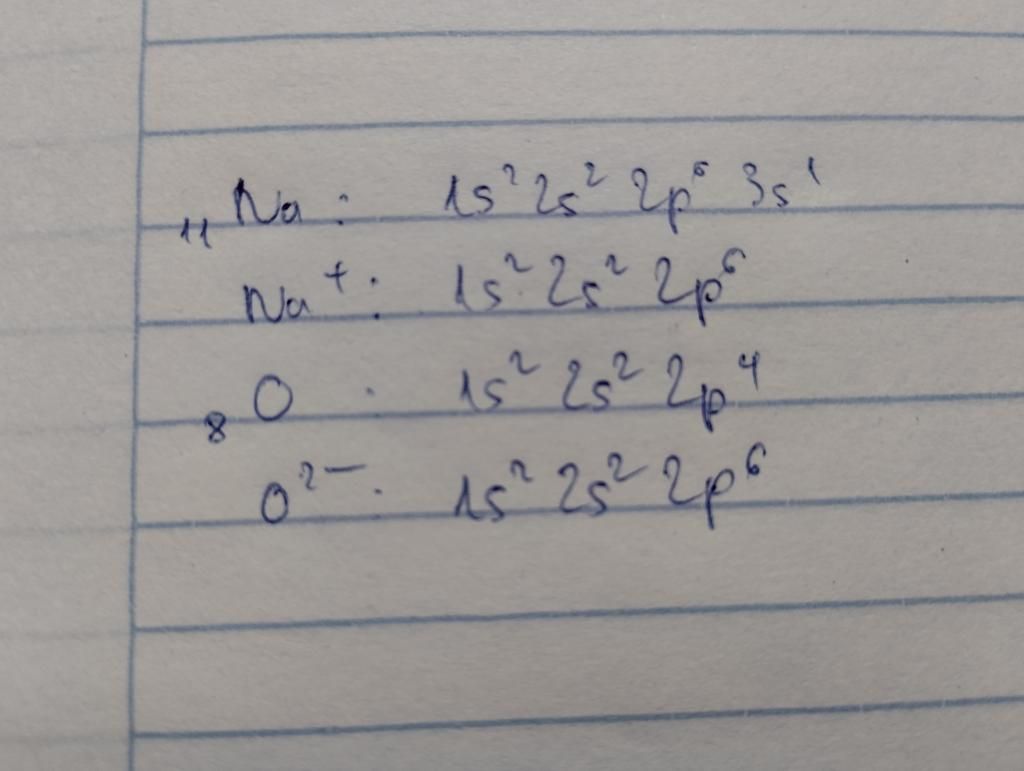 ₁₁Na : 1s² 2s² 2p⁶ 3s¹
Na⁺ : 1s² 2s² 2p⁶
₈O : 1s² 2s² 2p⁴
O²⁻ : 1s² 2s² 2p⁶